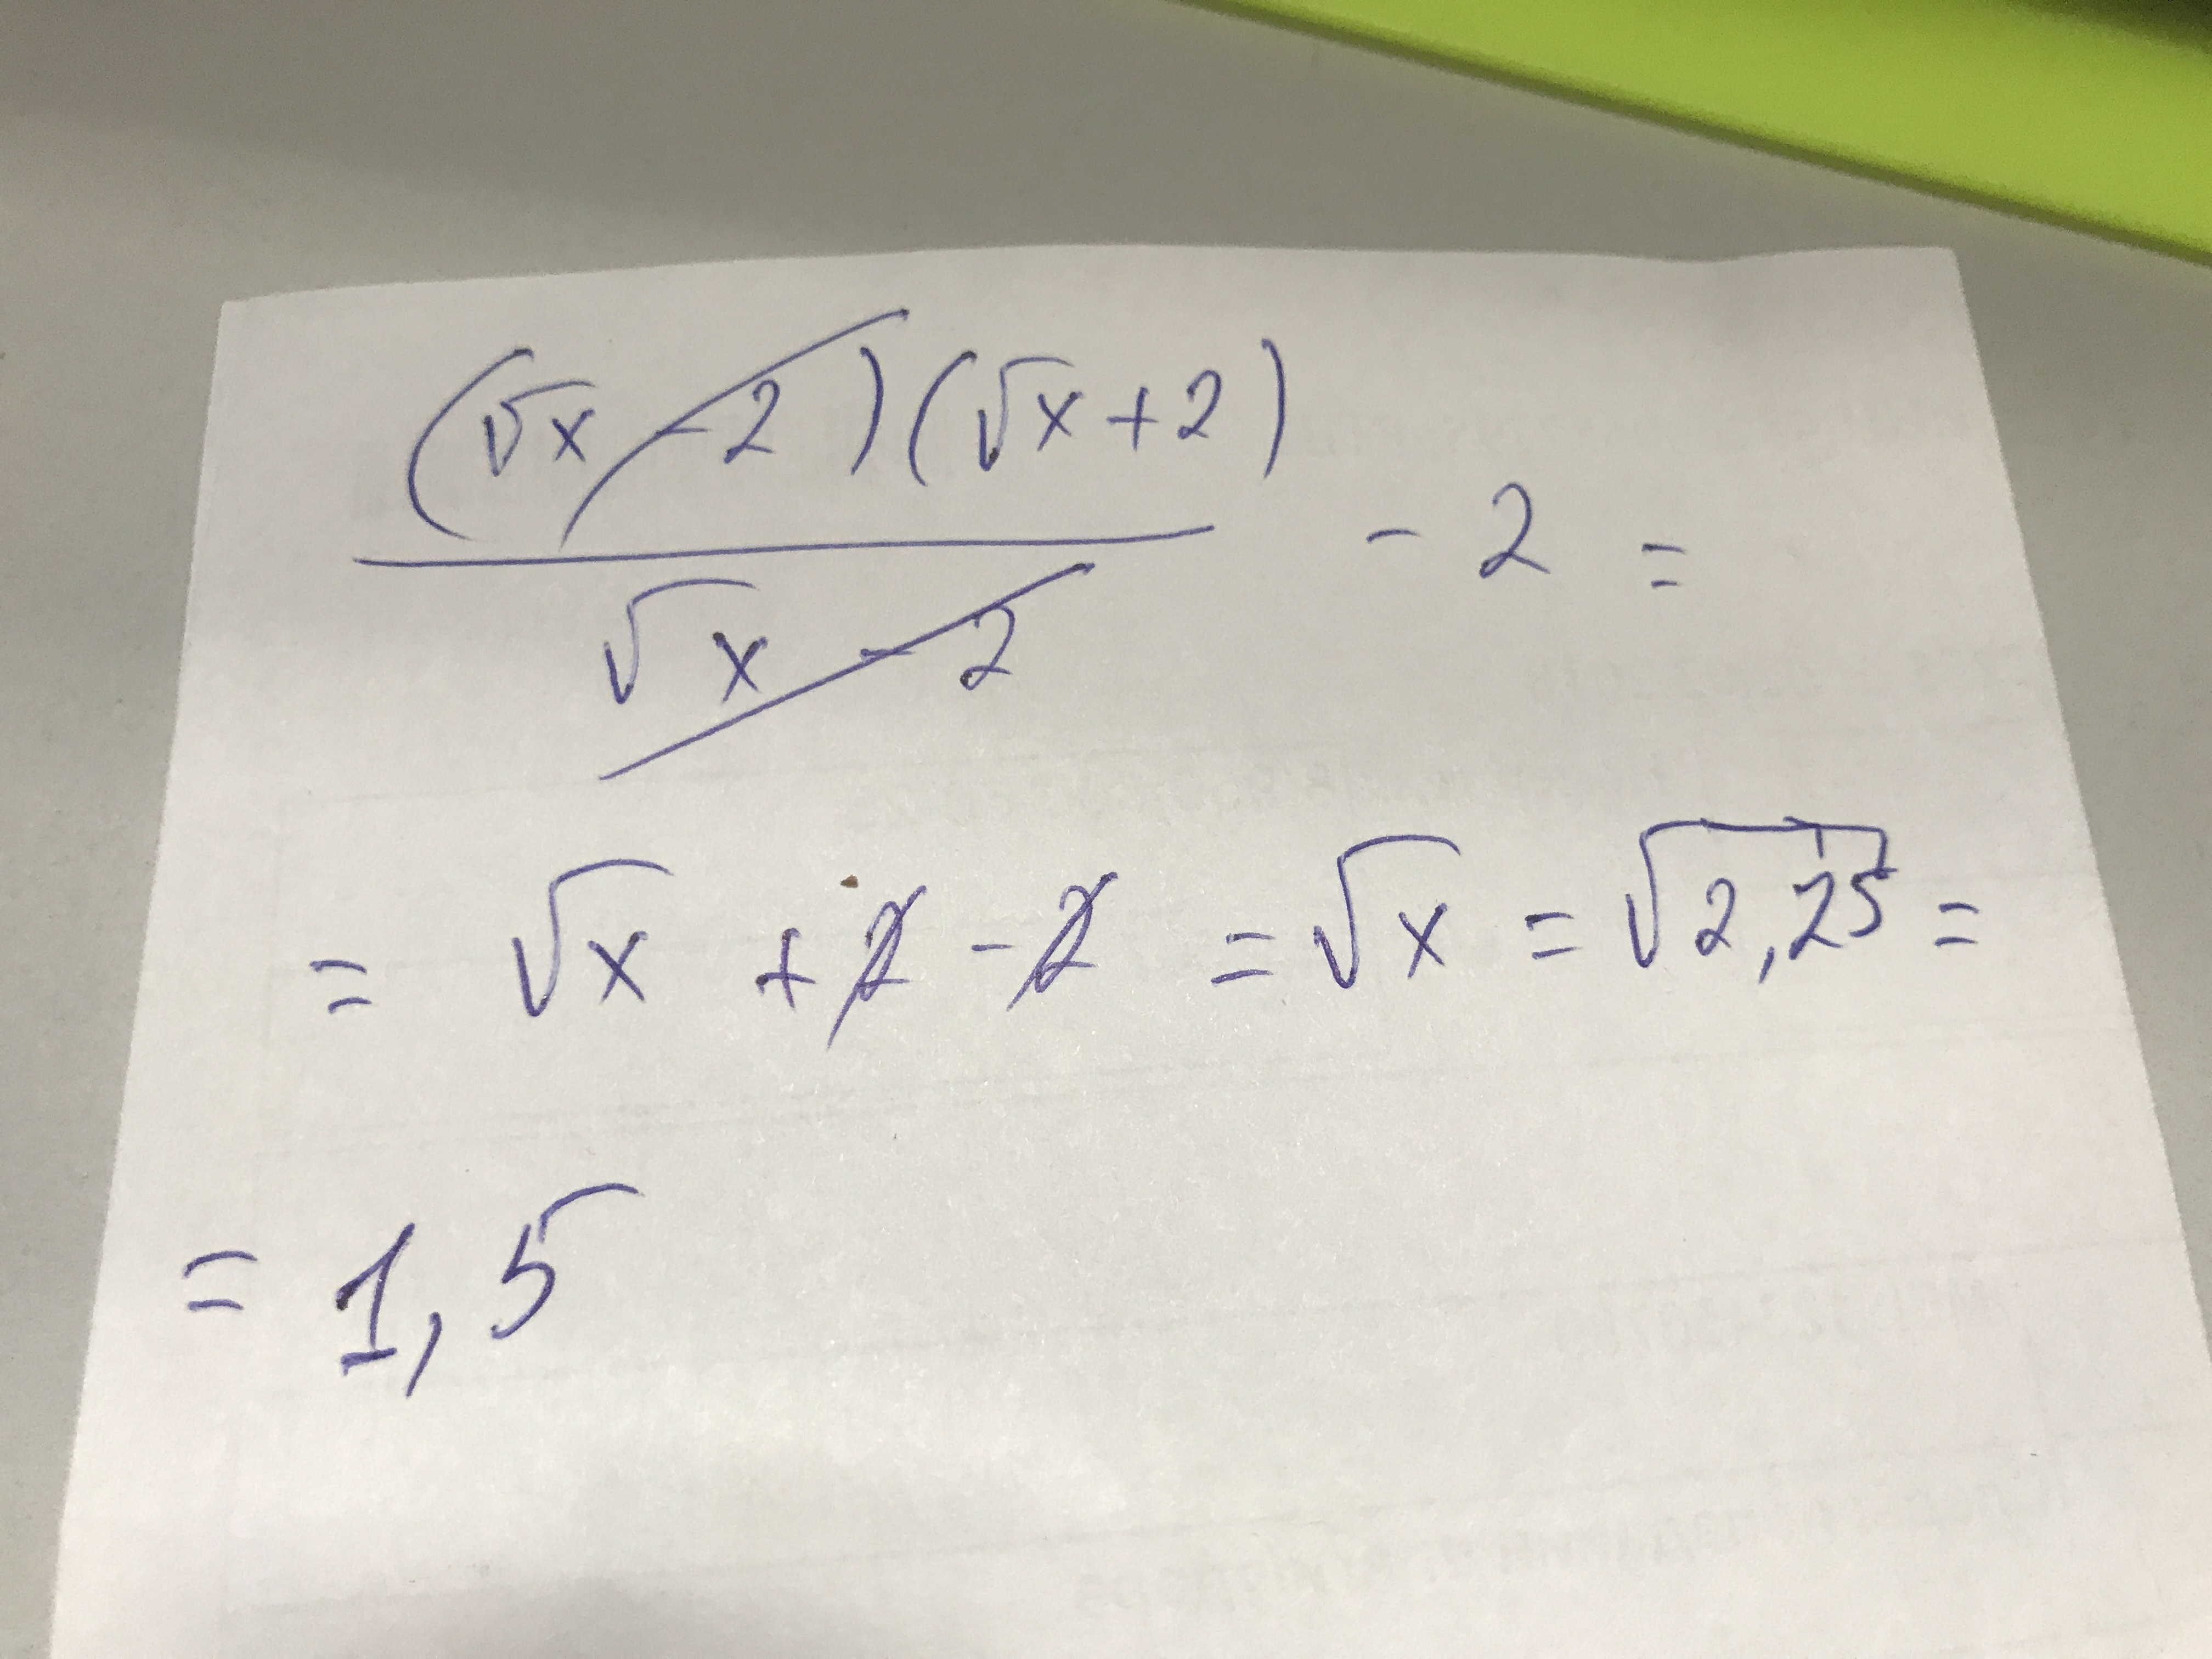 (√x - 2)(√x + 2)
√x - 2
- 2 =
= √x + 2 - 2 = √x = √2,25 =
= 1,5